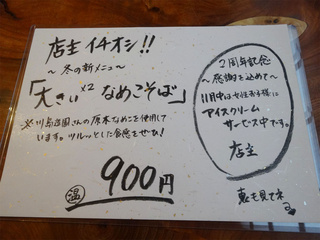 店主イチオシ!!
～冬の新メニュー～
「大きぃ なめこそば」
※川島農園さんの原木なめこを使用して
います。ツルッとした食感をぜひ!
温 900円
2周年記念
～感謝を込めて～
11月中は女性のお客様に
アイスクリーム
サービス中です。
店主
裏も見てネ